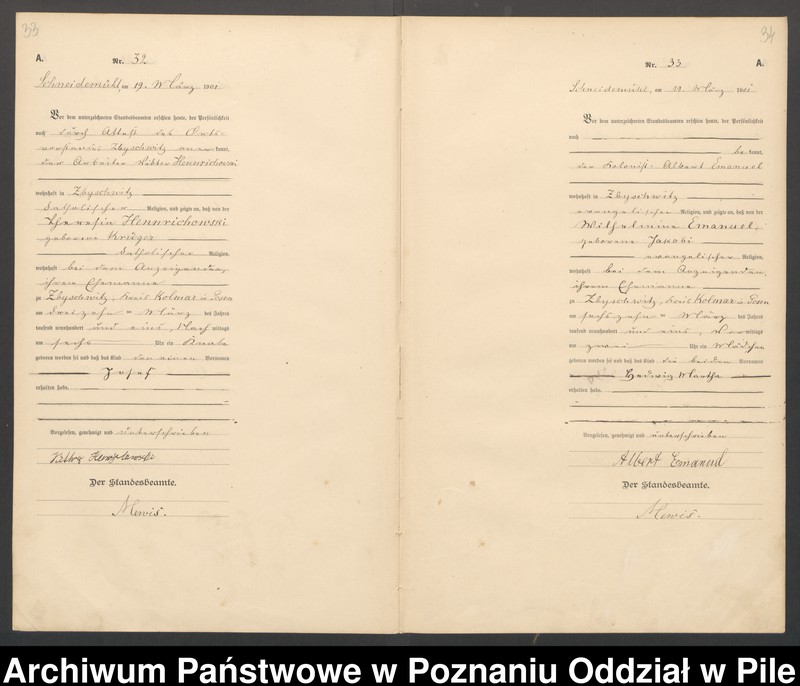 33
A.
Nr. 32
Schneidemühl, am 19. März 1901
Vor dem unterzeichneten Standesbeamten erschien heute, der Persönlichkeit
nach durch Attest des Orts-
vorstands Zbyschwitz aner kannt,
der Arbeiter Viktor Hennrichowski
wohnhaft in Zbyschwitz
katholischer Religion, und zeigte an, daß von der
Theresia Hennrichowski
geborene Krüger
katholischer Religion,
wohnhaft bei dem Anzeigenden,
ihrem Ehemanne
zu Zbyschwitz, Kreis Kolmar i. Posen
am dreizehn ten März des Jahres
tausend neunhundert und eins, Nach mittags
um sechs Uhr ein Knabe
geboren worden sei und daß das Kind den einen Vornamen
Josef
erhalten habe.
Vorgelesen, genehmigt und unterschrieben
Der Standesbeamte.
Mewis.
34
Nr. 33
A.
Schneidemühl, am 19. März 1901
Vor dem unterzeichneten Standesbeamten erschien heute, der Persönlichkeit
nach
be kannt,
der Kolonist Albert Emanuel
wohnhaft in Zbyschwitz
evangelischer Religion, und zeigte an, daß von der
Wilhelmine Emanuel,
geborene Jakobi
evangelischer Religion,
wohnhaft bei dem Anzeigenden,
ihrem Ehemanne
zu Zbyschwitz, Kreis Kolmar i. Posen
am sechszehn ten März des Jahres
tausend neunhundert und eins, Vor mittags
um zwei Uhr ein Mädchen
geboren worden sei und daß das Kind die beiden Vornamen
Hedwig Martha
erhalten habe.
Vorgelesen, genehmigt und unterschrieben
Albert Emanuel
Der Standesbeamte.
Mewis.
Archiwum Państwowe w Poznaniu Oddział w Pile